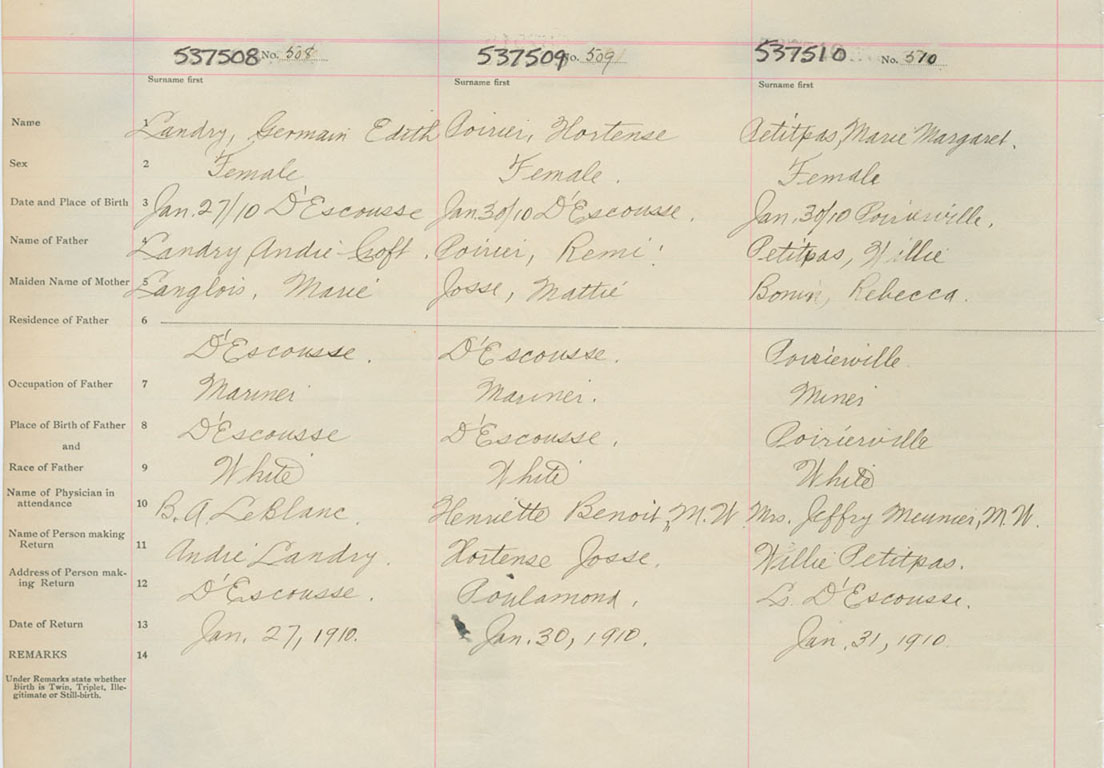 537508 No. 508 537509 No. 509 537510 No. 510
Surname first Surname first Surname first
Name 1 Landry, Germain Edith Poirier, Hortense Petitpas, Marie Margaret.
Sex 2 Female Female. Female
Date and Place of Birth 3 Jan. 27/10 D'Escousse Jan 30/10 D'Escousse. Jan. 30/10 Poirierville.
Name of Father 4 Landry, André Poirier, Remi Petitpas, Willie
Maiden Name of Mother 5 Langlois, Marie Josse, Mattie Bonin, Rebecca.
Residence of Father 6
D'Escousse. D'Escousse. Poirierville
Occupation of Father 7 Mariner Mariner. Miner
Place of Birth of Father 8 D'Escousse D'Escousse. Poirierville
and
Race of Father 9 White White White
Name of Physician in
attendance 10 B. A. LeBlanc. Henriette Benoit, M. W Mrs. Jeffry Meunier, M. W.
Name of Person making
Return 11 André Landry. Hortense Josse. Willie Petitpas.
Address of Person mak-
ing Return 12 D'Escousse. Poulamond. D'Escousse.
Date of Return 13 Jan. 27, 1910. Jan. 30, 1910. Jan. 31, 1910.
REMARKS 14
Under Remarks state whether
Birth is Twin, Triplet, Ille-
gitimate or Still-birth.